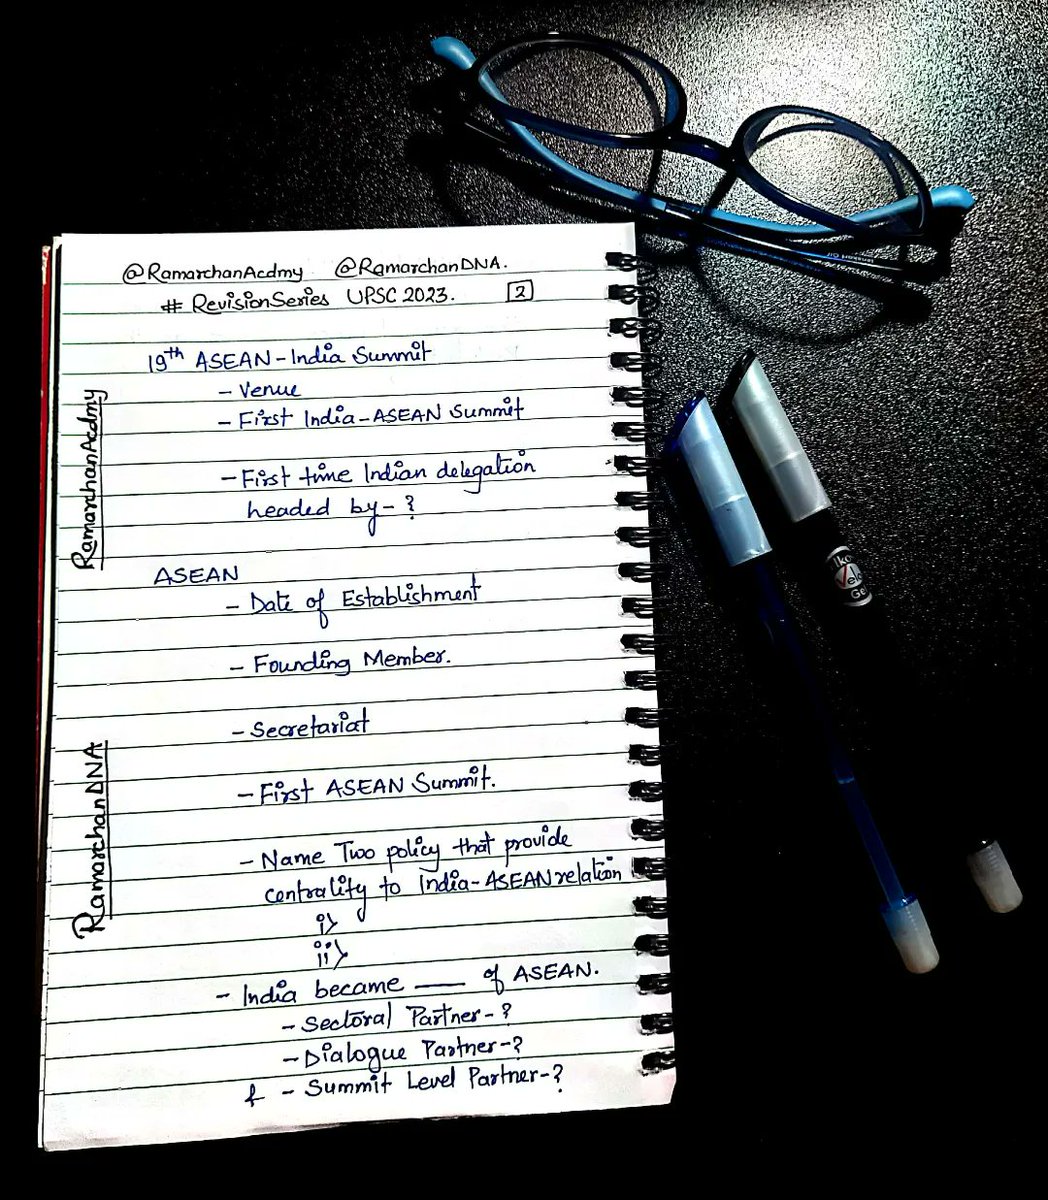 @RamarchanAcdmy @RamarchanDNA.
# RevisionSeries UPSC 2023. 2
19th ASEAN-India Summit
- Venue
- First India-ASEAN Summit
- First time Indian delegation
headed by- ?
ASEAN
- Date of Establishment
- Founding Member.
- Secretariat
- First ASEAN Summit.
- Name Two policy that provide
centrality to India-ASEAN relation
i>
ii>
- India became ___ of ASEAN.
- Sectoral Partner-?
- Dialogue Partner-?
& - Summit Level Partner-?
RamarchanAcdmy
RamarchanDNA